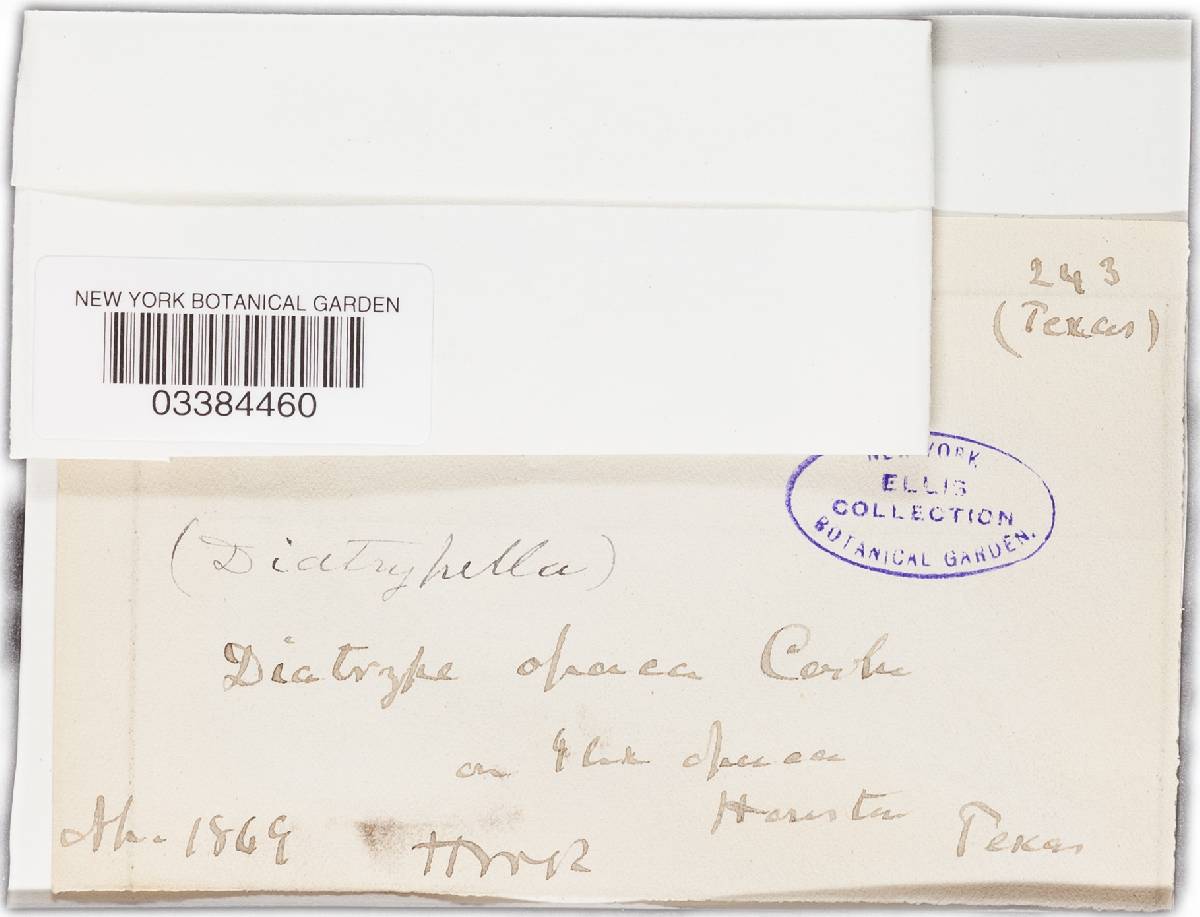 243
(Texas)
NEW YORK BOTANICAL GARDEN
03384460
NEW YORK
ELLIS
COLLECTION
BOTANICAL GARDEN.
(Diatrypella)
Diatrype opaca Cooke
on Ilex opaca
Houston Texas
Ap. 1869 HWR